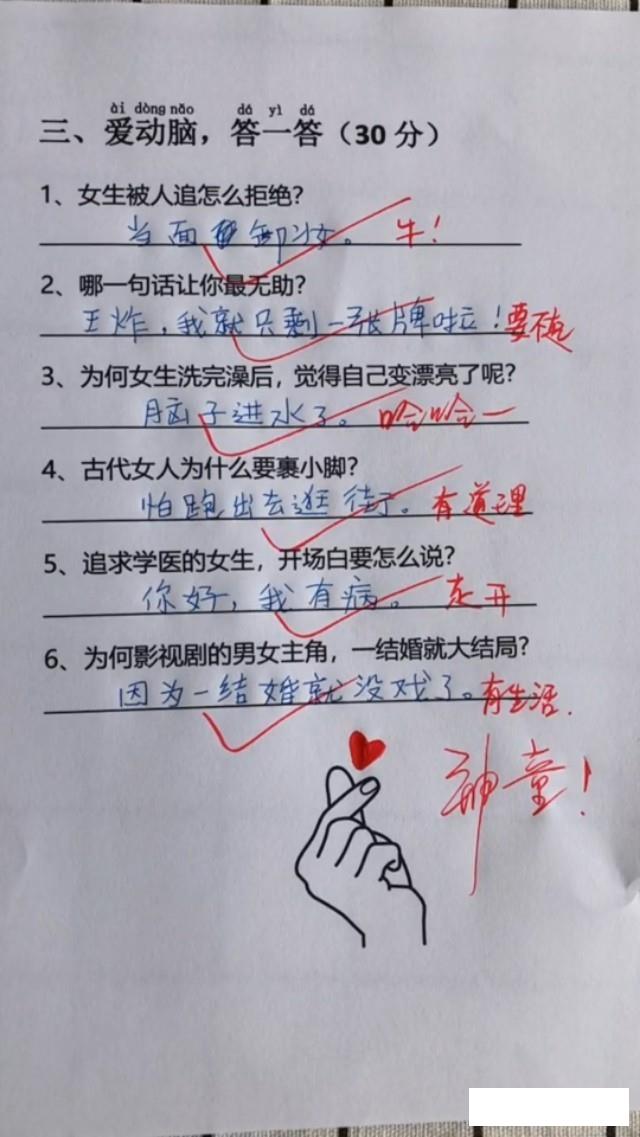 ài dòng nǎo dá yì dá
三、爱动脑，答一答（30 分）
1、女生被人追怎么拒绝？
当面卸妆。 牛！
2、哪一句话让你最无助？
王炸，我就只剩一张牌啦！要不起
3、为何女生洗完澡后，觉得自己变漂亮了呢？
脑子进水了。 哈哈一
4、古代女人为什么要裹小脚？
怕跑出去逛街。 有道理
5、追求学医的女生，开场白要怎么说？
你好，我有病。 走开
6、为何影视剧的男女主角，一结婚就大结局？
因为一结婚就没戏了。有生活.
神童！